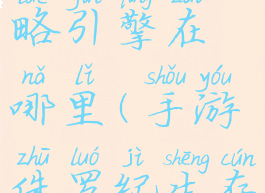 略引擎在
nǎ lǐ shǒu yóu
哪里(手游
zhū luó jì shēng cún
侏罗纪生存